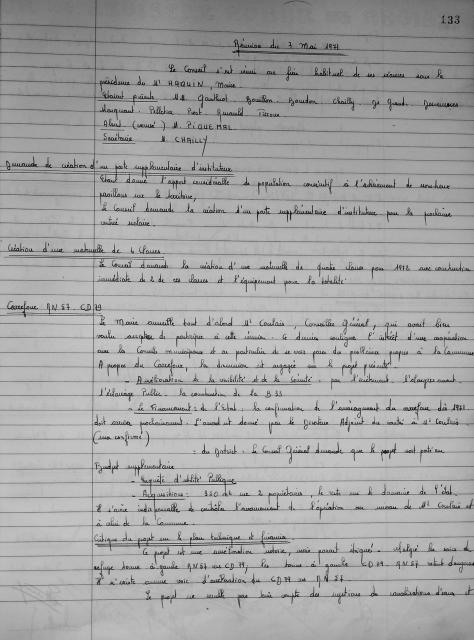 133
Réunion du 3 Mai 1971
Le Conseil s'est réuni au lieu habituel de ses séances sous la
présidence de Mr HAQUIN, Maire
Etaient présents MM. Gauthiot Bouillon Bourdon Chailly
Manquant. Pelletier
Absent (excusé) M. PIQUEMAL
Secrétaire M. CHAILLY
Demande de création d'un poste supplémentaire d'institutrice
Etant donné l'apport considérable de population consécutif à l'achèvement de nouveaux
pavillons sur le territoire,
Le Conseil demande la création d'un poste supplémentaire d'institutrice pour la prochaine
rentrée scolaire.
Création d'une maternelle de 4 Classes
Le Conseil demande la création d'une maternelle de quatre classes pour 1972 avec construction
immédiate de 2 de ces classes et l'équipement pour la totalité
Carrefour RN 57 CD 79
Le Maire accueille tout d'abord Mr Coulais, Conseiller Général, qui avait bien
voulu accepter de participer à cette réunion. Ce dernier souligne l'intérêt d'une coopération
avec les Conseils municipaux et en particulier de se voir pour des problèmes propres à la Commune
A propos du Carrefour, la discussion est engagée sur le projet présenté
- Amélioration de la visibilité et de la Sécurité : par l'élargissement
l'éclairage Public. la construction de la B 33
- Le Financement : de l'Etat. la confirmation de l'aménagement du carrefour dès 1971
doit arriver prochainement. L'accord est donné par le Directeur Adjoint à Mr Coulais.
(sera confirmé)
: du District. Le Conseil Général demande que le projet soit porté au
Budget supplémentaire
- Enquête d'utilité Publique
- Acquisitions : 350 m2 sur 2 propriétaires, le reste sur le domaine de l'état.
Il s'avère indispensable de contrôler l'avancement de l'opération au niveau de Mr Coulais et
à celui de la Commune.
Critique du projet sur le plan technique et financier
Ce projet est une amélioration notoire, mais paraît étriqué. Malgré les voies de
refuge tourne à gauche RN 57 CD 79, les tourne à gauche CD 79. RN 57
Il n'existe aucune voie d'accélération du CD 79 sur RN 57
Le projet ne semble pas tenir compte des sujétions de canalisations d'eau et